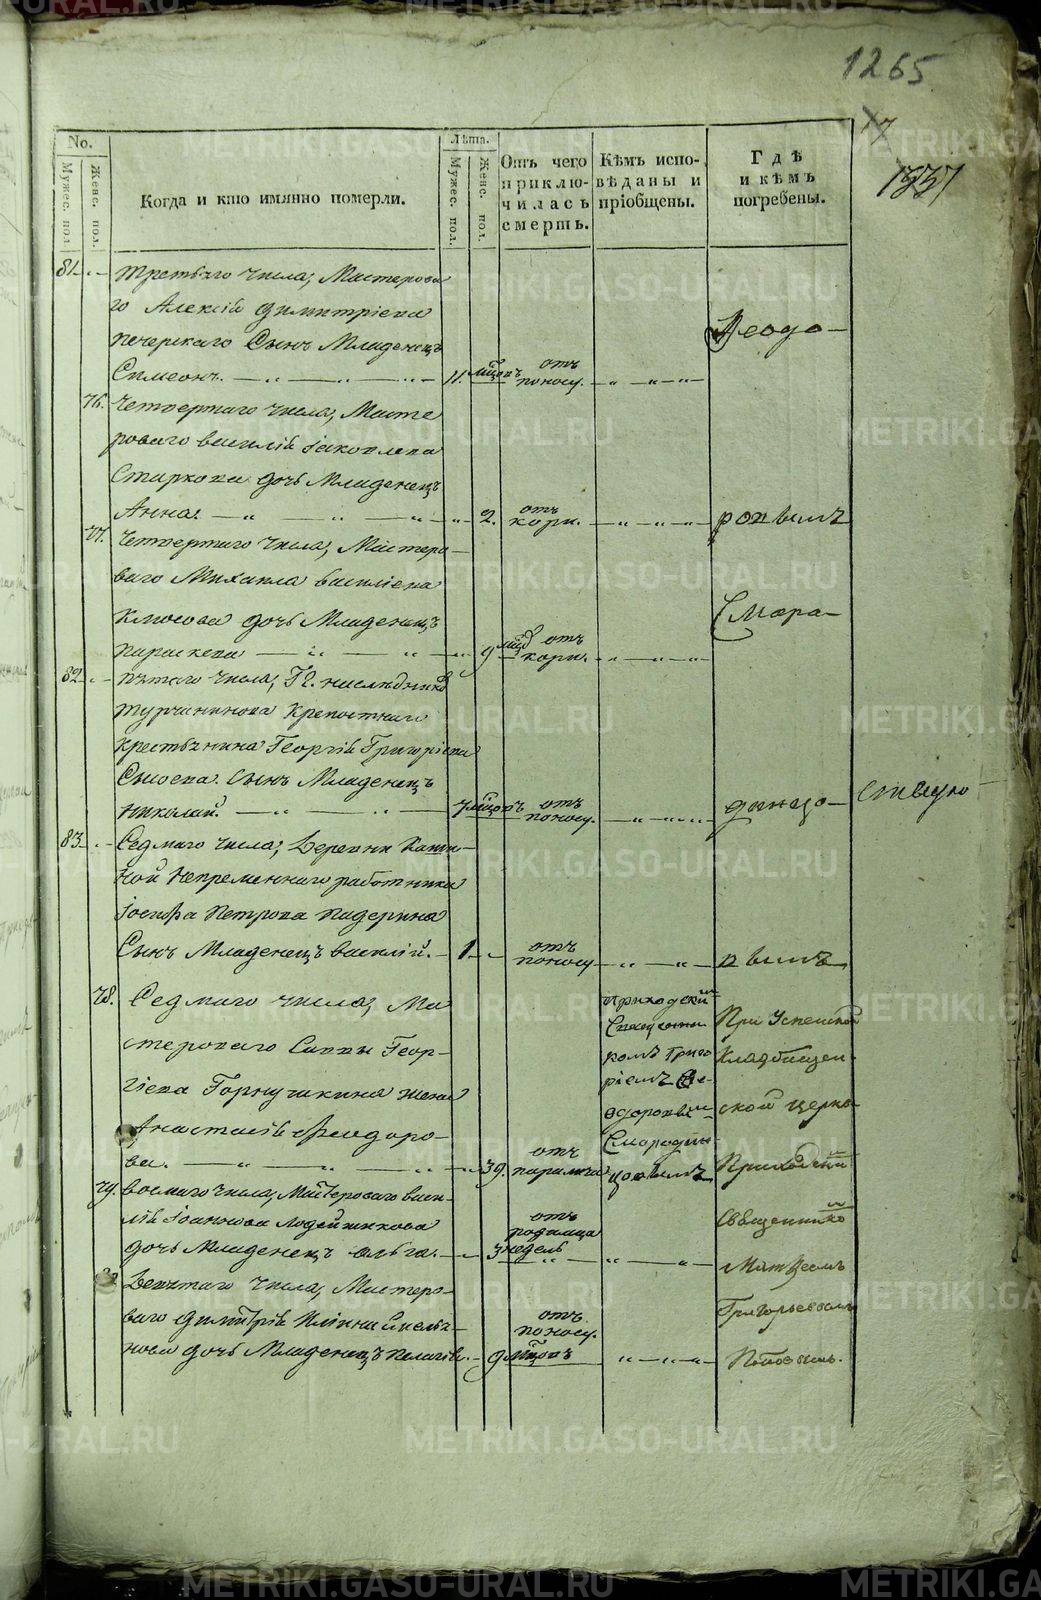 1265
1937
No.
Мужес. пол.
Женс. пол.
Когда и кто имянно померли.
Лѣта.
Мужес. пол.
Женс. пол.
Отъ чего приклю-чилась смерть.
Кѣмъ испо-вѣданы и пріобщены.
Гдѣ и кѣмъ погребены.
81. Третьяго числа, Мастерова
го Алексій Димитріева
Печерскаго Сынъ Младенецъ
Симеонъ. 11. мѣсяцовъ отъ поносу.
Ѳеодо-
76. Четвертаго числа, Масте
роваго Василій Іаковлева
Старкова дочь Младенецъ
Анна. 2. отъ кори.
ровымъ
77. Четвертаго числа, Мастеро-
ваго Михаила Василіева
Клюсова дочь Младенецъ
Параскева 9 отъ кори.
Смара-
82 Пятаго числа, Гг. наслѣдниковъ
Турчанинова Крепостнаго
крестьянина Георгій Григоріева
Сысоева. Сынъ Младенецъ
Николай. 7 отъ поносу.
динцо-
83. Седмаго числа, Деревни
ной Непременнаго работника
Іосифа Петрова Падерина
Сынъ Младенецъ Василій. 1 отъ поносу
вымъ
78. Седмаго числа, Ма
стероваго Саввы Геор-
гіева Горнушкина жена
Анастасія Ѳеодоро-
ва. 39. отъ паралича
Приходскимъ
Священни
комъ Григо
ріемъ Ѳе-
одоровым
Смородин
цовымъ
При Успенской
Кладбищен-
ской церкви
Приходскимъ
79. Восмаго числа, Мастероваго Васи-
лій Іоаннова Лодейщикова
дочь Младенецъ Ольга. 3 недель
отъ родимца
Священникомъ
Матвеемъ
80 Девятаго числа, Мастеро-
ваго Димитрій
дочь Младенецъ Пелагія. 9 мѣсяцовъ
отъ поносу.
Григорьевымъ
Поповымъ.
METRIKI.GASO-URAL.RU